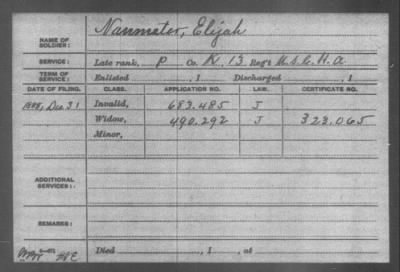 NAME OF SOLDIER: Nanmator, Elijah
SERVICE: Late rank, P Co. K, 13 Reg't U.S.C.H.A.
TERM OF SERVICE: Enlisted , 1 Discharged , 1
DATE OF FILING. CLASS. APPLICATION NO. LAW. CERTIFICATE NO.
1888, Dec 31 Invalid, 683.485 J
Widow, 490.292 J 323.065
Minor,
ADDITIONAL SERVICES:
REMARKS:
Died , 1 , at